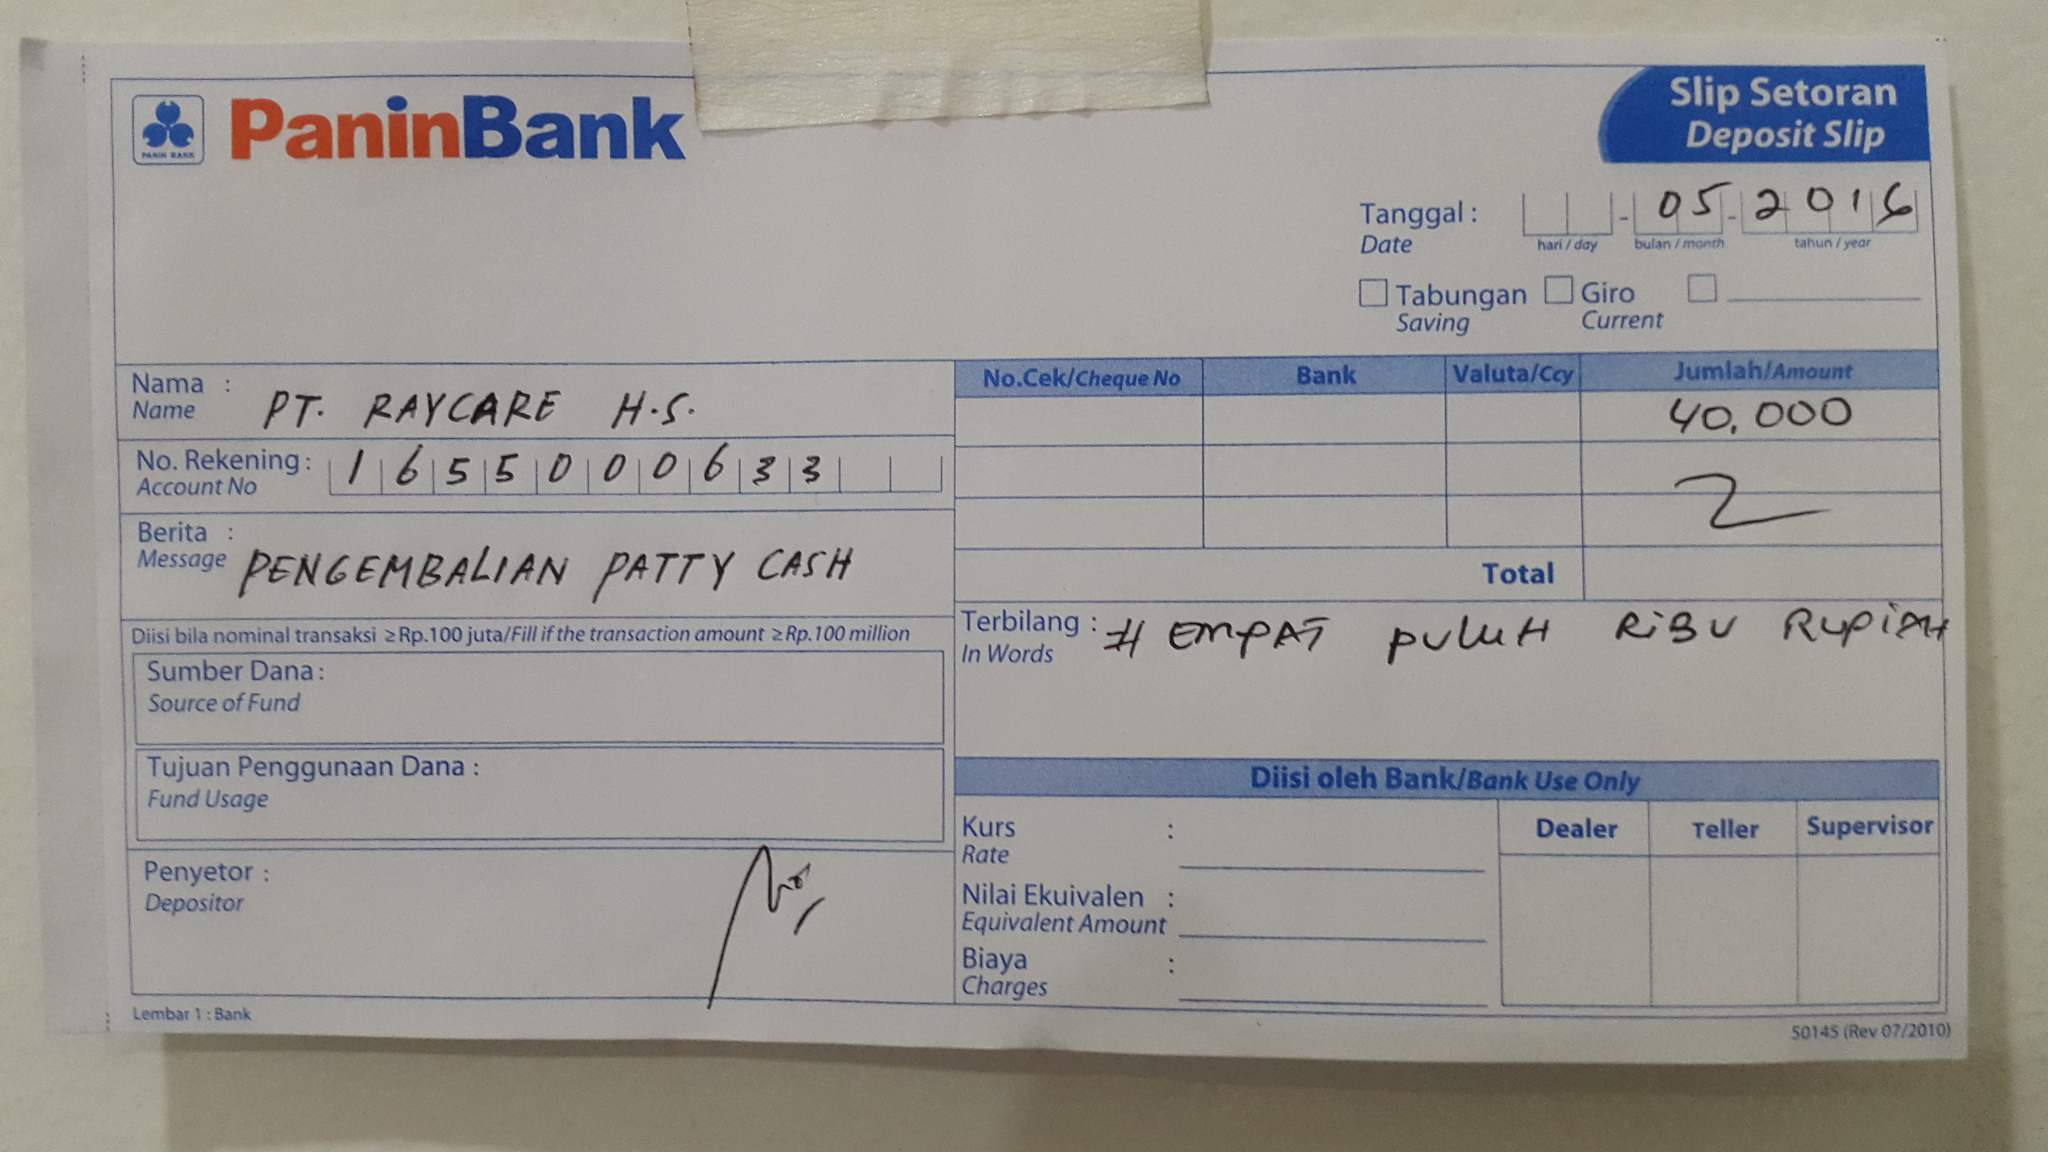 PANIN BANK
PaninBank
Slip Setoran
Deposit Slip
Tanggal : - 05 - 2016
Date hari / day bulan / month tahun / year
Tabungan Giro
Saving Current
Nama :
Name PT. RAYCARE H.S.
No. Rekening : 1655000633
Account No
Berita :
Message PENGEMBALIAN PATTY CASH
Diisi bila nominal transaksi ≥Rp.100 juta/Fill if the transaction amount ≥Rp.100 million
Sumber Dana :
Source of Fund
Tujuan Penggunaan Dana :
Fund Usage
Penyetor :
Depositor
Lembar 1 : Bank
No.Cek/Cheque No Bank Valuta/Ccy Jumlah/Amount
40.000
Total
Terbilang : # EMPAT PULUH RIBU RUPIAH
In Words
Diisi oleh Bank/Bank Use Only
Kurs :
Rate
Nilai Ekuivalen :
Equivalent Amount
Biaya :
Charges
Dealer Teller Supervisor
50145 (Rev 07/2010)